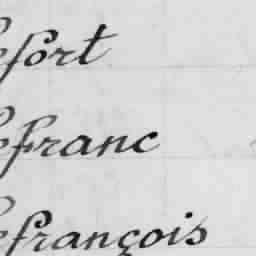 efort
efranc
efrançois